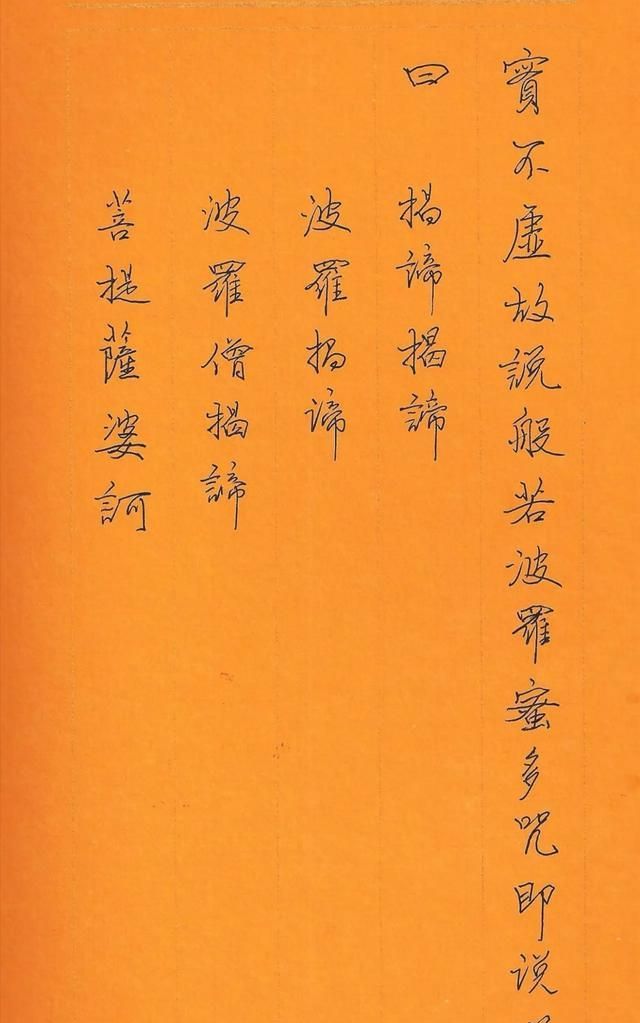 實不虛故說般若波羅蜜多咒即说
曰 揭諦揭諦
波羅揭諦
波羅僧揭諦
菩提薩婆訶